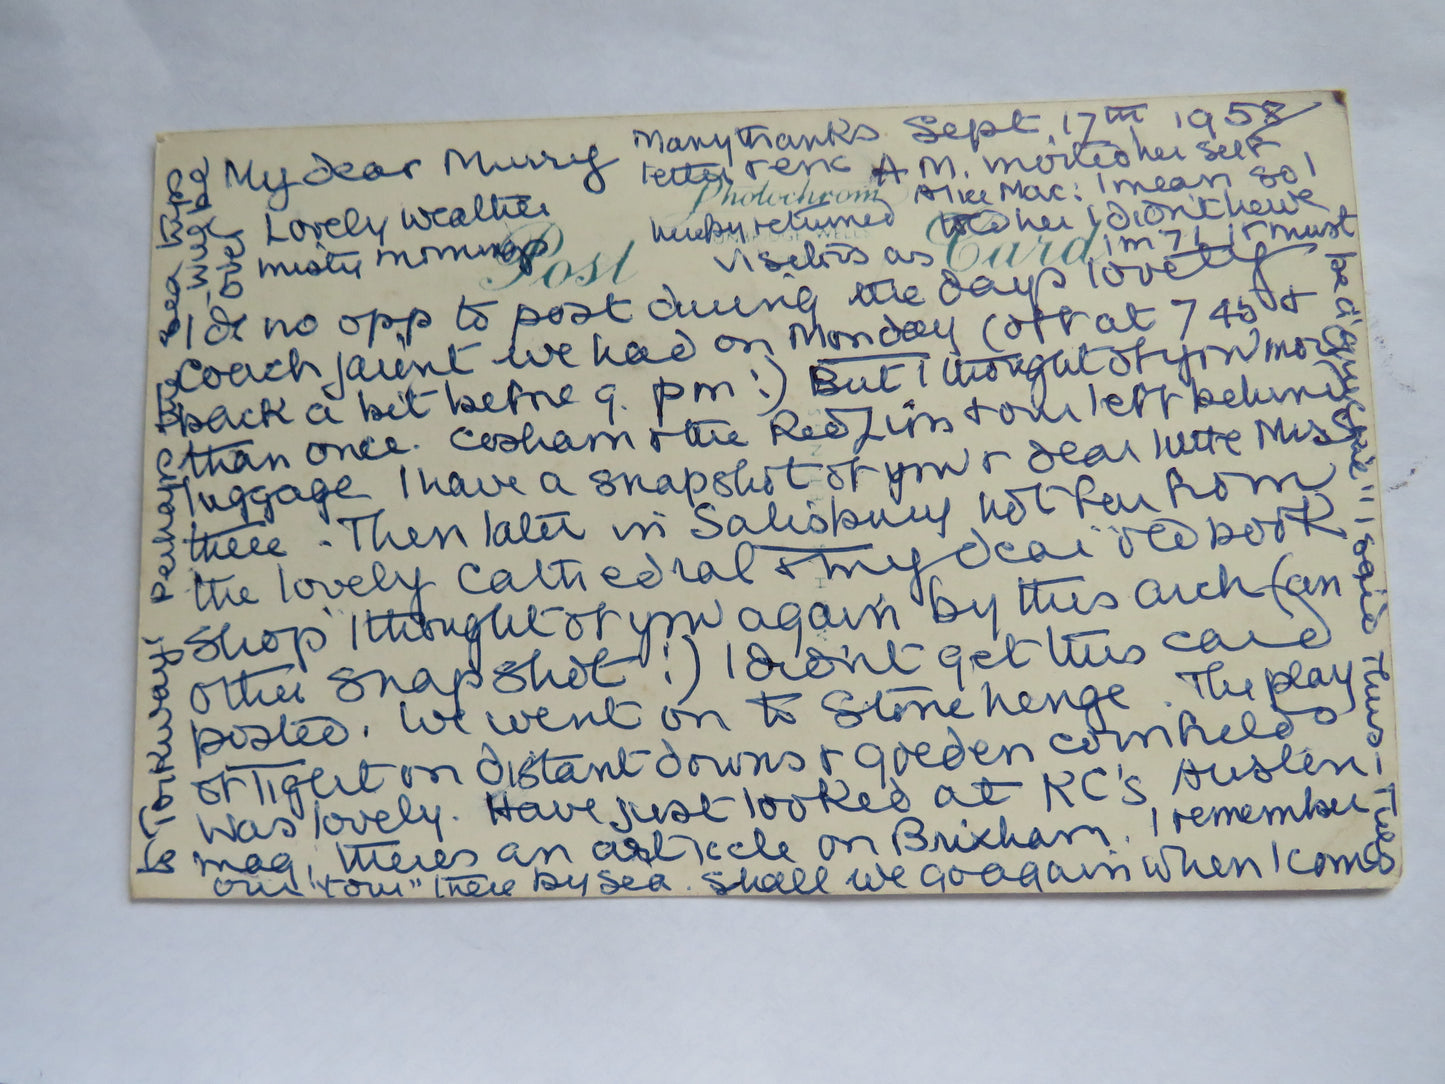 Sept. 17th 1958
My dear Murry
Lovely weather
misty mornings
Many thanks
letter & enc
hereby returned
A.M. invited her self
Alice Mac: I mean so I
told her I didn't have
visitors as I'm 71 it must
be a "squash"!! I said
Photochrom
Post Card
TUNBRIDGE WELLS
I'd no opp to post during the days lovely
coach jaunt we had on Monday (off at 7 45 &
back a bit before 9. pm!) But I thought of you more
than once. Cosham & the Red Lion & our left behind
luggage I have a snapshot of you & dear little Mrs
there. Then later in Salisbury not far from
the lovely Cathedral & my dear "old book
shop" I thought of you again by this arch (an
other snapshot!) I didn't get this card
posted. We went on to Stonehenge. The play
of light on distant downs & golden cornfields
was lovely. Have just looked at KC's Austin
mag, theres an article on Brixham. I remember
our "tour" there by sea. Shall we go again when I come
to Torkway? Perhaps the sea trips
will be
over